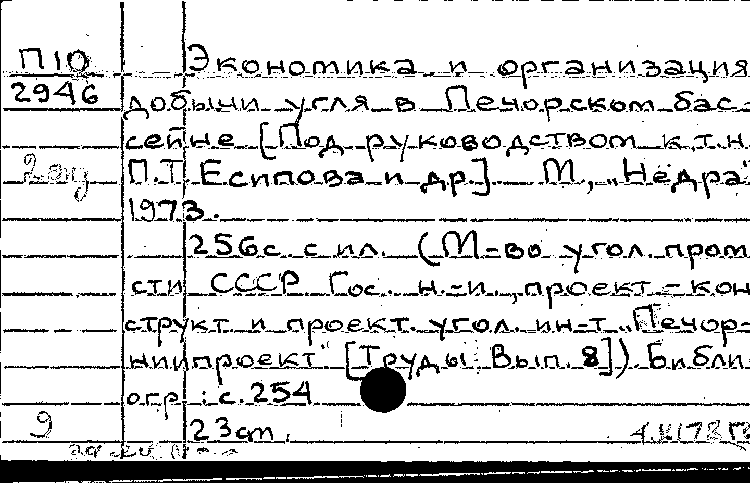 П10 Экономика и организация
2946 добычи угля в Печорском бас-
сейне [Под руководством к.т.н.
2 экз П.Т. Есипова и др.] М, „Недра"
1973.
256с. с ил. (М-во угол. пром-
сти СССР Гос. н.-и., проект.-кон-
структ. и проект. угол. ин-т „Печор-
ниипроект" [Труды. Вып. 8]) Библи-
огр.: с. 254
9 23 см.